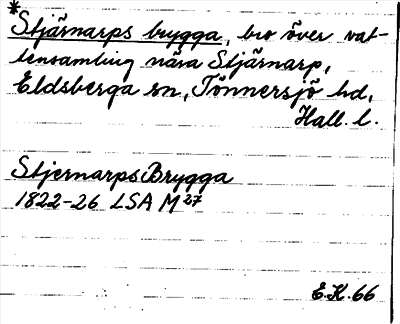 *
Stjärnarps brygga, bro över vat-
tensamling nära Stjärnarp,
Eldsberga sn, Tönnersjö hd,
Hall. l.
StjernarpsBrygga
1822-26 LSA M 27
E.K. 66